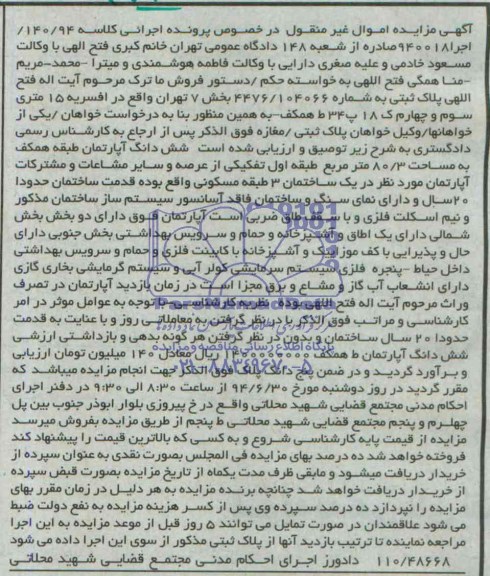 آگهی مزایده اموال غیر منقول در خصوص پرونده اجرائی کلاسه ۱۴۰/۹۴/
اجرا۹۴۰۰۱۸صادره از شعبه ۱۴۸ دادگاه عمومی تهران خانم کبری فتح الهی با وکالت
مسعود خادمی و علیه صغری دارایی با وکالت فاطمه هوشمندی و میترا -محمد-مریم
-منا همگی فتح اللهی به خواسته حکم /دستور فروش ما ترک مرحوم آیت اله فتح
اللهی پلاک ثبتی به شماره ۴۴۷۶/۱۰۴۰۶۶ بخش ۷ تهران واقع در افسریه ۱۵ متری
سوم و چهارم ک ۱۸ پ۳۴ ط همکف-به همین منظور بنا به درخواست خواهان /یکی از
خواهانها/وکیل خواهان پلاک ثبتی /مغازه فوق الذکر پس از ارجاع به کارشناس رسمی
دادگستری به شرح زیر توصیق و ارزیابی شده است شش دانگ آپارتمان طبقه همکف
به مساحت ۸۰/۳ متر مربع طبقه اول تفکیکی از عرصه و سایر مشاعات و مشترکات
آپارتمان مورد نظر در یک ساختمان ۳ طبقه مسکونی واقع بوده قدمت ساختمان حدودا
۲۰سال و دارای نمای سنگ و ساختمان فاقد آسانسور سیستم ساز ساختمان مذکور
و نیم اسکلت فلزی و با سقف طاق ضربی است آپارتمان فوق دارای دو بخش بخش
شمالی دارای یک اطاق و آشپزخانه و حمام و سرویس بهداشتی بخش جنوبی دارای
حال و پذیرایی با کف موزائیک و آشپزخانه با کابینت فلزی و حمام و سرویس بهداشتی
داخل حیاط -پنجره فلزی سیستم سرمایشی کولر آبی و سیستم گرمایشی بخاری گازی
دارای انشعاب آب گاز و مشاع و برق مجزا است در زمان بازدید آپارتمان در تصرف
وراث مرحوم آیت اله فتح اللهی بوده نظریه کارشناسی با توجه به عوامل موثر در امر
کارشناسی و مراتب فوق الذکر با در نظر گرفتن به معاملاتی روز و با عنایت به قدمت
حدودا ۲۰ سال ساختمان و بدون در نظر گرفتن هر گونه بدهی و بازداشتی ارزشی
شش دانگ آپارتمان ط همکف ریال معادل ۱۴۰ میلیون تومان ارزیابی
و برآورد گردید و در ضمن پنج دانگ پلاک فوق الذکر جهت انجام مزایده میباشد که
مقرر گردید در روز دوشنبه مورخ ۹۴/۶/۳۰ از ساعت ۸:۳۰ الی ۹:۳۰ در دفتر اجرای
احکام مدنی مجتمع قضایی شهید محلاتی واقع در خ پیروزی بلوار ابوذر جنوب بین پل
چهارم و پنجم مجتمع قضایی شهید محلاتی ط پنجم از طریق مزایده بفروش میرسد
مزایده از قیمت پایه کارشناسی شروع و به کسی که بالاترین قیمت را پیشنهاد کند
فروخته خواهد شد ده درصد بهای مزایده فی المجلس بصورت نقدی به عنوان سپرده از
خریدار دریافت میشود و مابقی ظرف مدت یکماه از تاریخ مزایده بصورت قبض سپرده
از خریدار دریافت خواهد شد چنانچه برنده مزایده به هر دلیل در زمان مقرر بهای
مزایده را نپردازد ده درصد سپرده وی پس از کسر هزینه مزایده به نفع دولت ضبط
می شود علاقمندان در صورت تمایل می توانند ۵ روز قبل از موعد مزایده به این اجرا
مراجعه نماینده تا ترتیب بازدید آنها از پلاک ثبتی مذکور از سوی این اجرا داده می شود
۱۱۰/۴۸۶۶۸ دادورز اجرای احکام مدنی مجتمع قضایی شهید محلاتی